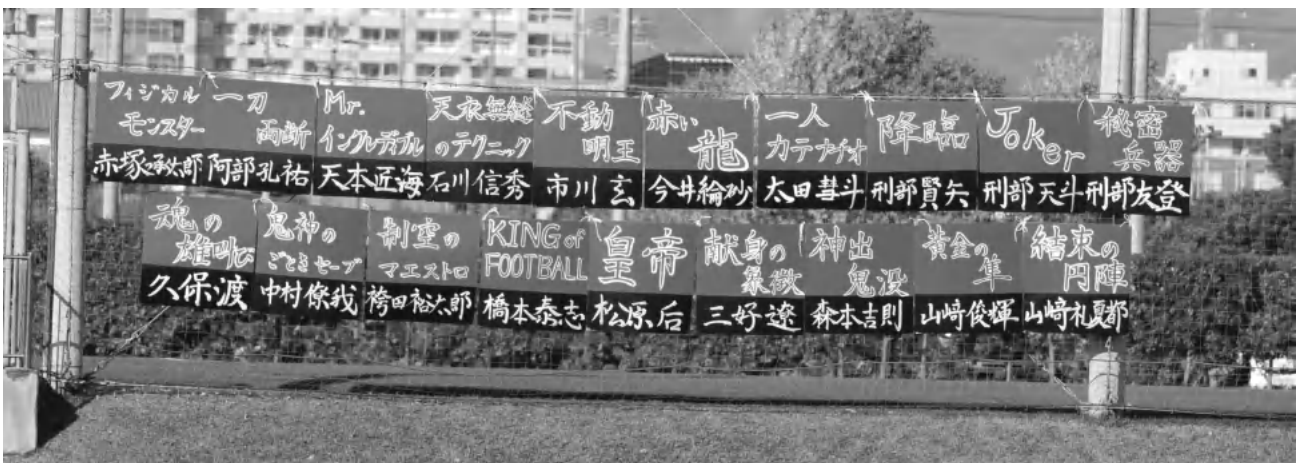 フィジカル
モンスター
赤塚承太郎
一刀
両断
阿部孔祐
Mr.
インクレディブル
天本匠海
天衣無縫
のテクニック
石川信秀
不動
明王
市川玄
赤い
龍
今井綸砂
一人
カテナチオ
太田彗斗
降臨
刑部賢矢
Joker
刑部天斗
秘密
兵器
刑部友登
魂の
雄叫び
久保渡
鬼神の
ごときセーブ
中村僚我
制空の
マエストロ
袴田裕太郎
KING of
FOOTBALL
橋本泰志
皇帝
松原后
献身の
象徴
三好遼
神出
鬼没
森本吉則
黄金の
隼
山﨑俊輝
結束の
円陣
山﨑礼夏都